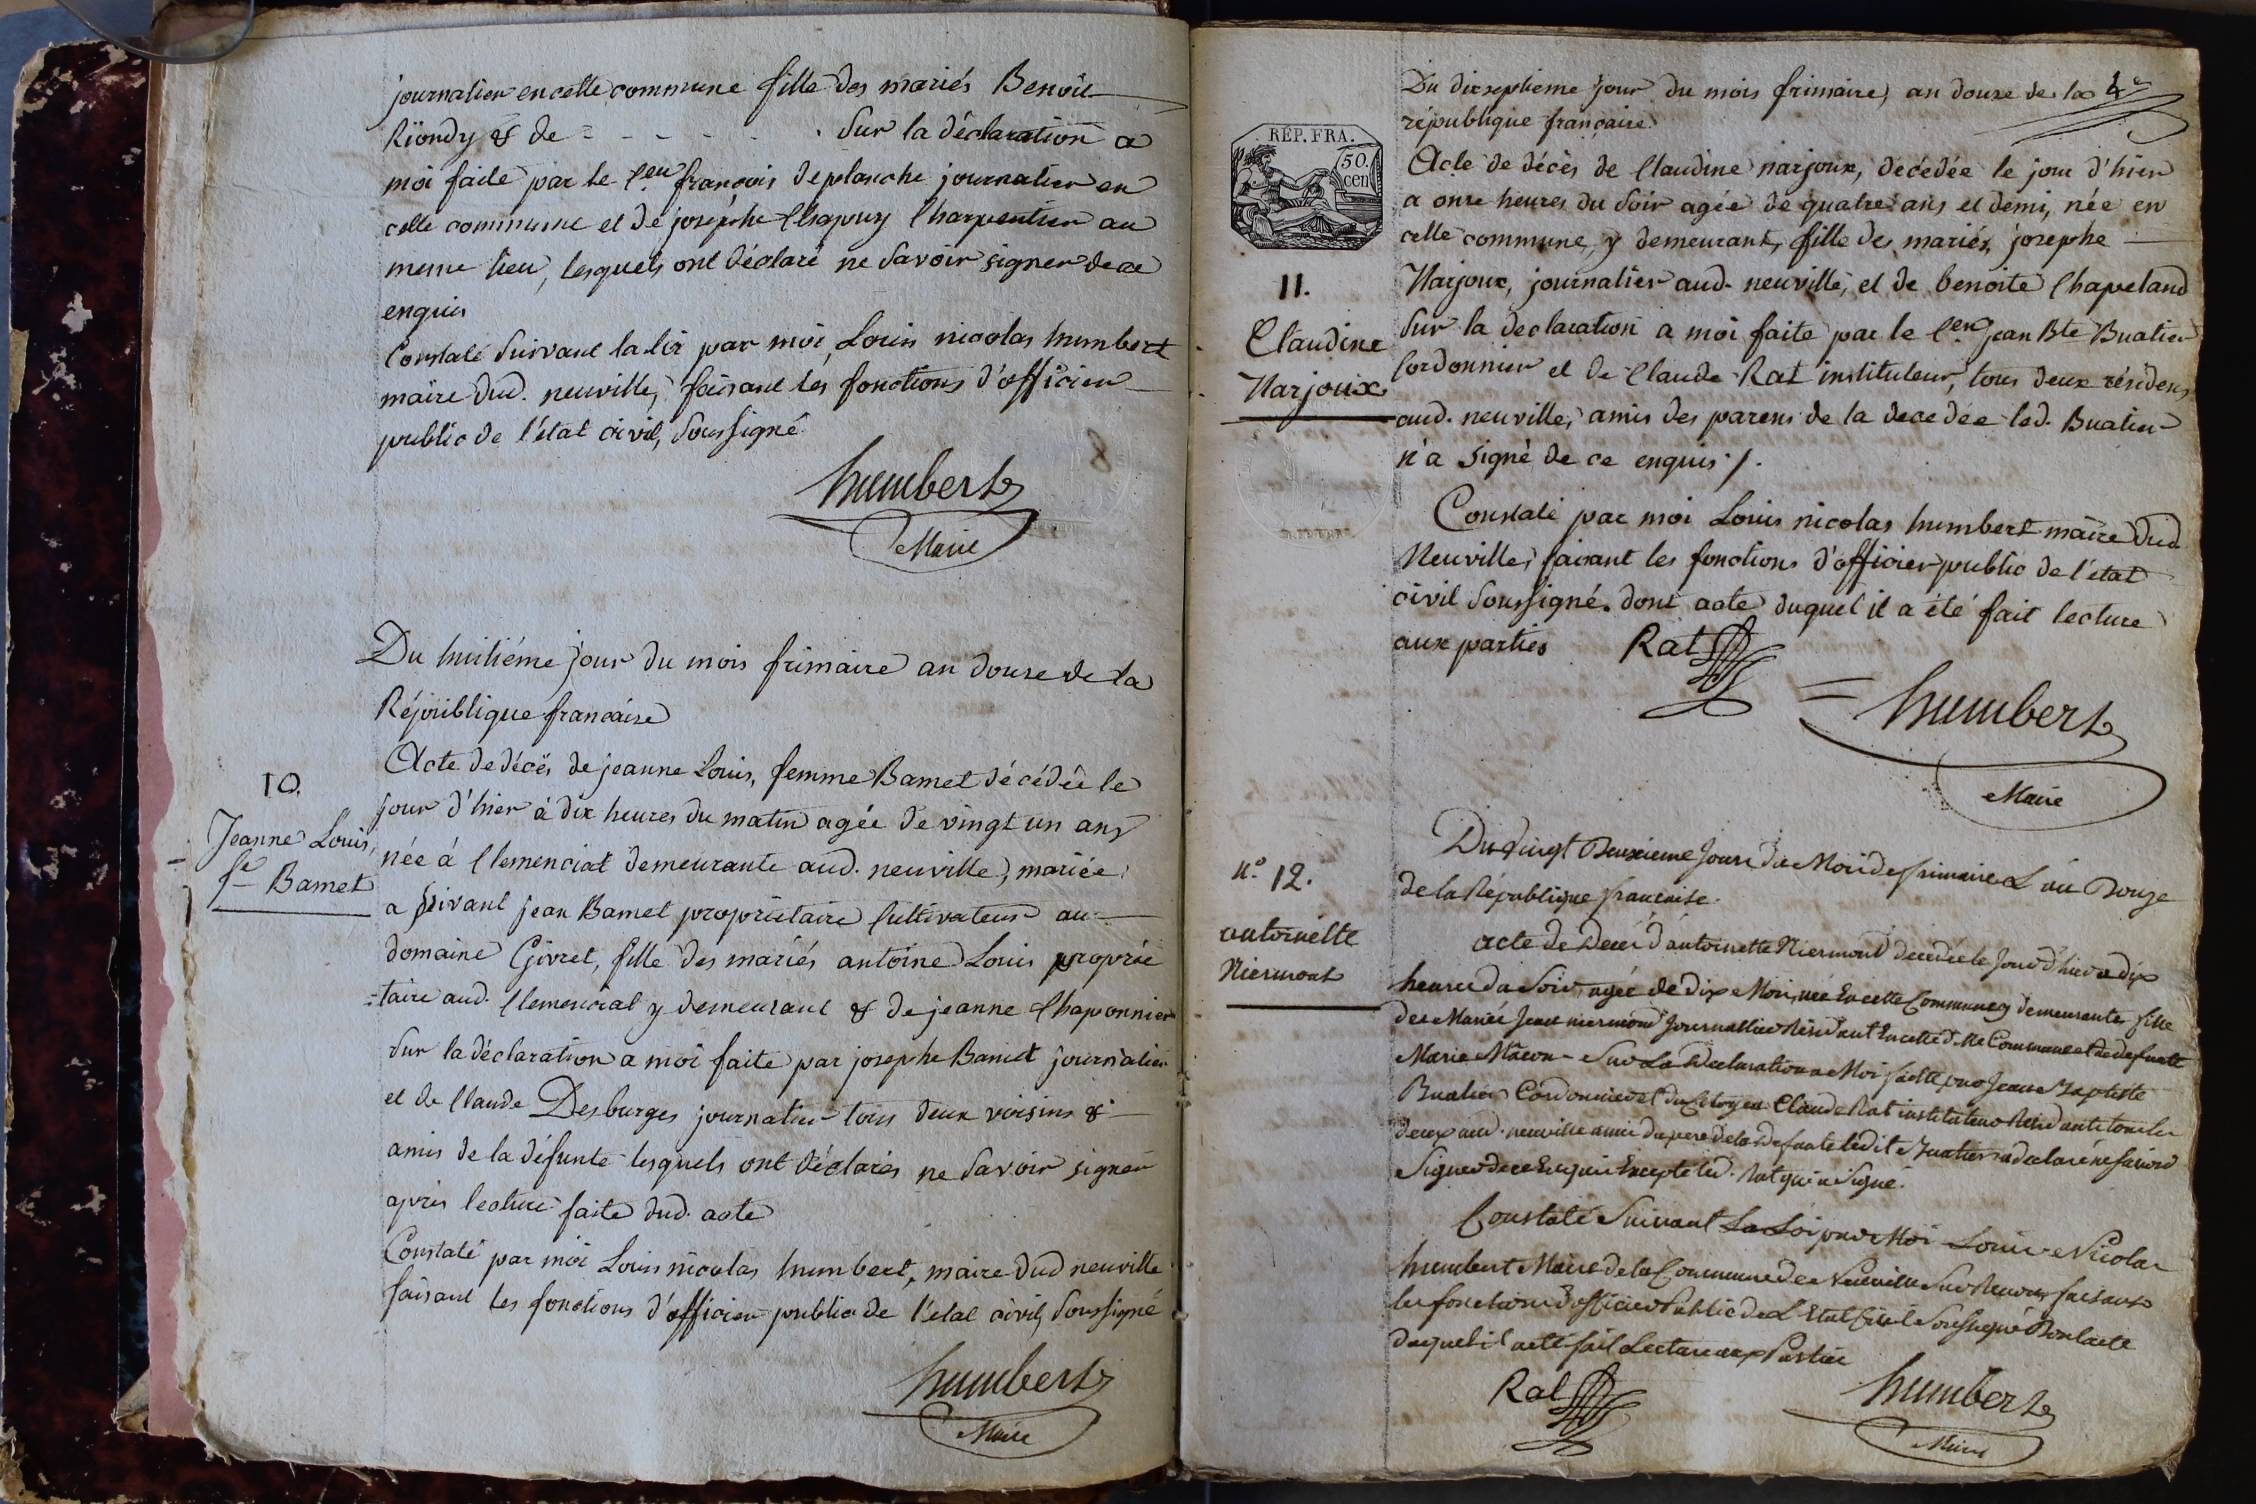 journalier en cette commune fille des mariés Benoit
Riondy & de - - - - - . Sur la déclaration a
moi faite par le Cen françois Deplanche journalier en
cette commune et de josephe Chapuy Charpentier au
meme lieu, lesquels ont déclaré ne Savoir signer de ce
enquis
Constaté Suivant la loi par moi, Louis nicolas humbert
maire dud. neuville, faisant les fonctions d'officier
public de l'état civil, Soussigné
humbert
Maire
8
Du huitiéme jour du mois frimaire an douze de la
République francaise
10.
Jeanne Louis,
fe Bamet
Acte de décès de jeanne Louis, femme Bamet décédée le
jour d'hier à dix heures du matin agée de vingt un ans
née à Clemenciat demeurante aud. neuville, mariée
a jean Bamet propriétaire Cultivateur au
domaine Givret, fille des mariés antoine Louis proprié
=taire aud. Clemenciat y demeurant & de jeanne Chaponnier
Sur la déclaration a moi faite par josephe Bamet journalier
et de Claude Desburges journalier tous deux voisins &
amis de la défunte lesquels ont déclarés ne Savoir signer
après lecture faite dud. acte
Constaté par moi Louis nicolas humbert, maire dud neuville
faisant les fonctions d'officier public de l'état civil, Soussigné
humbert
Maire
4e
Du dixseptieme jour du mois frimaire, an douze de la
république française.
RÉP. FRA.
50.
cen
11.
Claudine
Narjoux
Acte de décès de Claudine narjoux, décédée le jour d'hier
a onze heures du Soir agée de quatre ans et demi, née en
cette commune, y demeurant, fille des mariés, josephe
Narjoux, journalier aud. neuville, et de benoite Chapeland
Sur la declaration a moi faite par le Cen jean Bte Buatier
Cordonnier et de Claude Rat instituteur, tous deux résidens
aud. neuville, amis des parens de la decedée led. Buatier
n'a signé de ce enquis /.
Constaté par moi Louis nicolas humbert maire dud
Neuville, faisant les fonctions d'officier public de l'état
civil Soussigné. dont acte duquel il a été fait lecture
aux parties
Rat
humbert
Maire
N.o 12.
antoinette
Niermont
Du Vingt Deuxieme Jour du Mois de frimaire L'an Douze
de la République française.
acte de Décés d'antoinette Niermont decedée le Jour d'hier a dix
heures du Soir, agée de dix Mois, née En cette Commune y demeurante fille
des Mariés Jean niermont Journallier Résidant En cette ditte Commune et de defunte
Marie Mâcon - Sur La Declaration a Moi faitte par Jean Baptiste
Buatier Cordonnier et du Citoyen Claude Rat instituteur Residants tous les
deux aud. neuville amis du pere de la defunte ledit Buatier a declaré ne Savoir
Signer de ce Enquis Excepté led. Rat qui a Signé.
Constaté Suivant La Loi par Moi Louis Nicolas
humbert Maire de la Commune de Neuville Sur Renon faisant
les fonctions d'officier Public de L'Etat Civil Soussigné Dont acte
duquel il a eté fait Lecture aux Parties
Rat
humbert
Maire